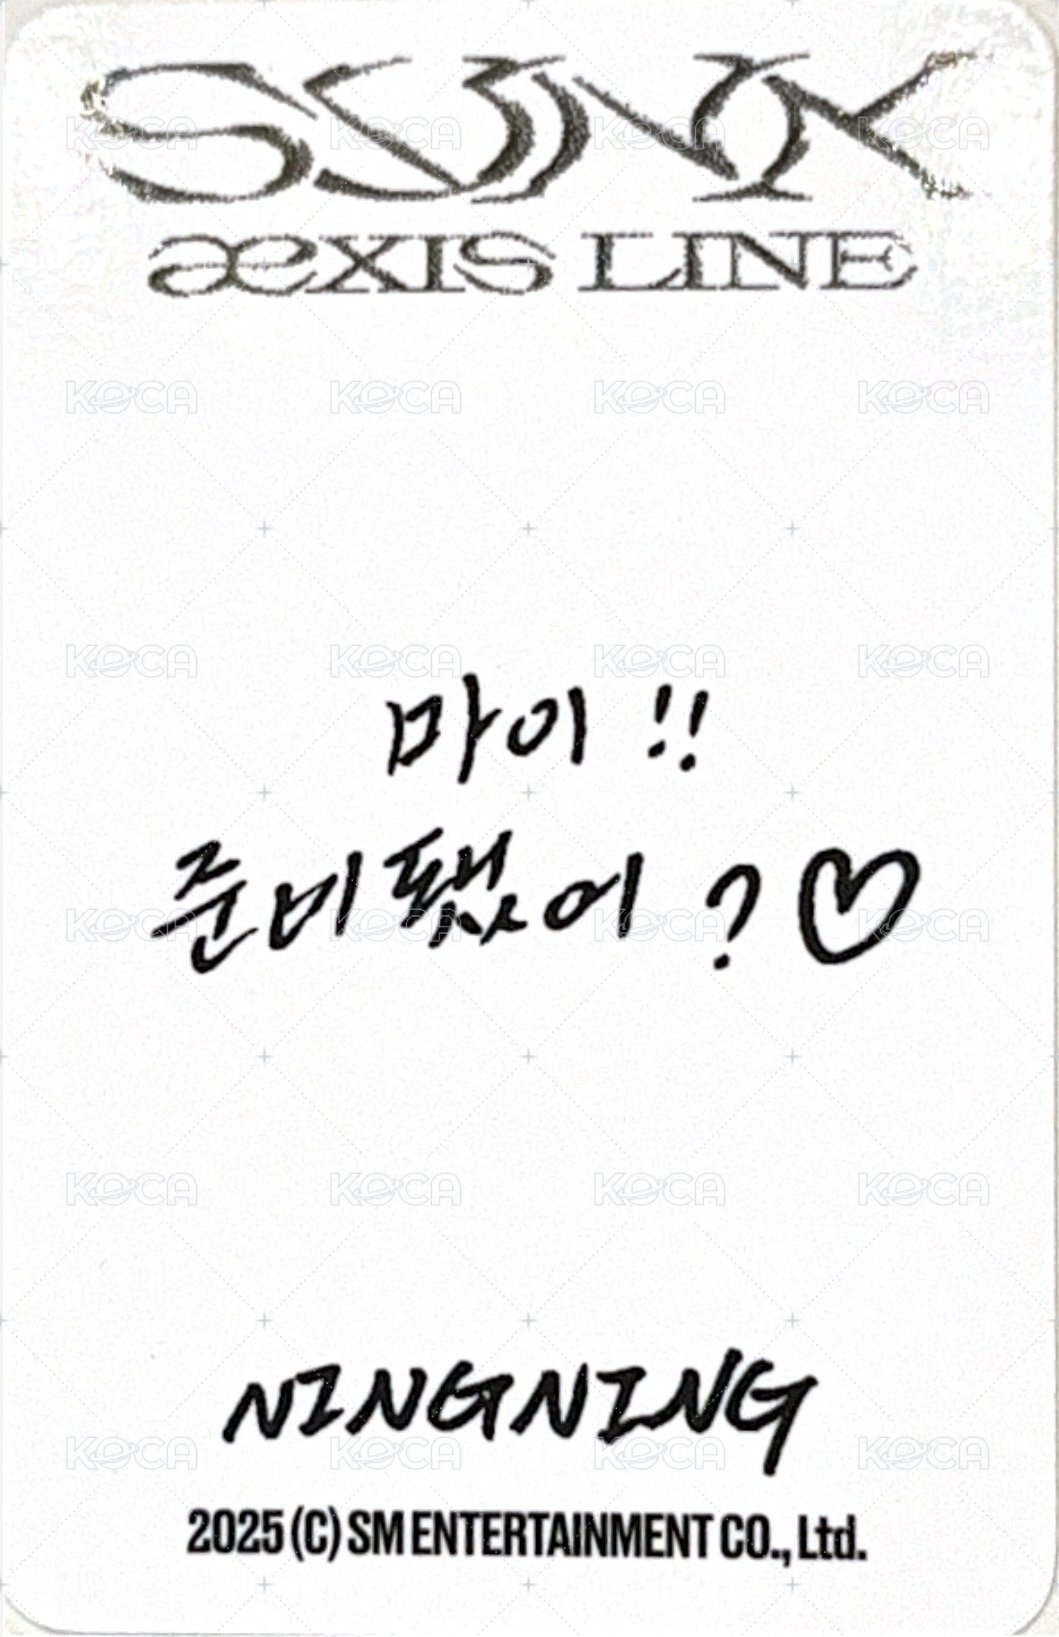 SYNK
æXIS LINE
마이 !!
준비됐어 ? ♡
NINGNING
2025 (C) SM ENTERTAINMENT CO., Ltd.
KOCA